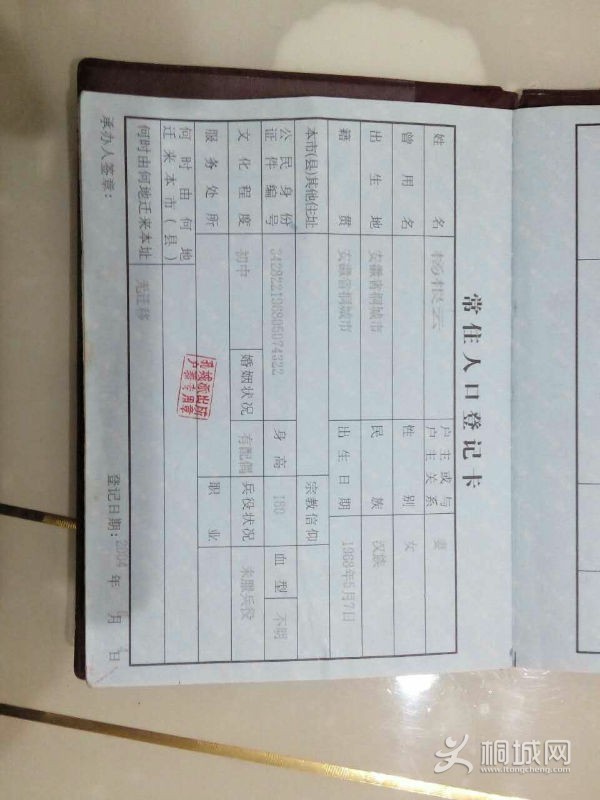 常住人口登记卡
姓名
户主或与户主关系 妻
曾用名
性别 女
出生地 安徽省桐城市
民族 汉族
籍贯 安徽省桐城市
出生日期 1968年5月7日
本市(县)其他住址
宗教信仰
公民身份证件编号 342822196805074322
身高 160
血型 不明
文化程度 初中
婚姻状况 有配偶
兵役状况 未服兵役
服务处所
职业
何时由何地迁来本市(县)
何时由何地迁来本址 无迁移
派出所
户口专用章
承办人签章:
登记日期: 2004 年 月 日
桐城网
www.itongcheng.com